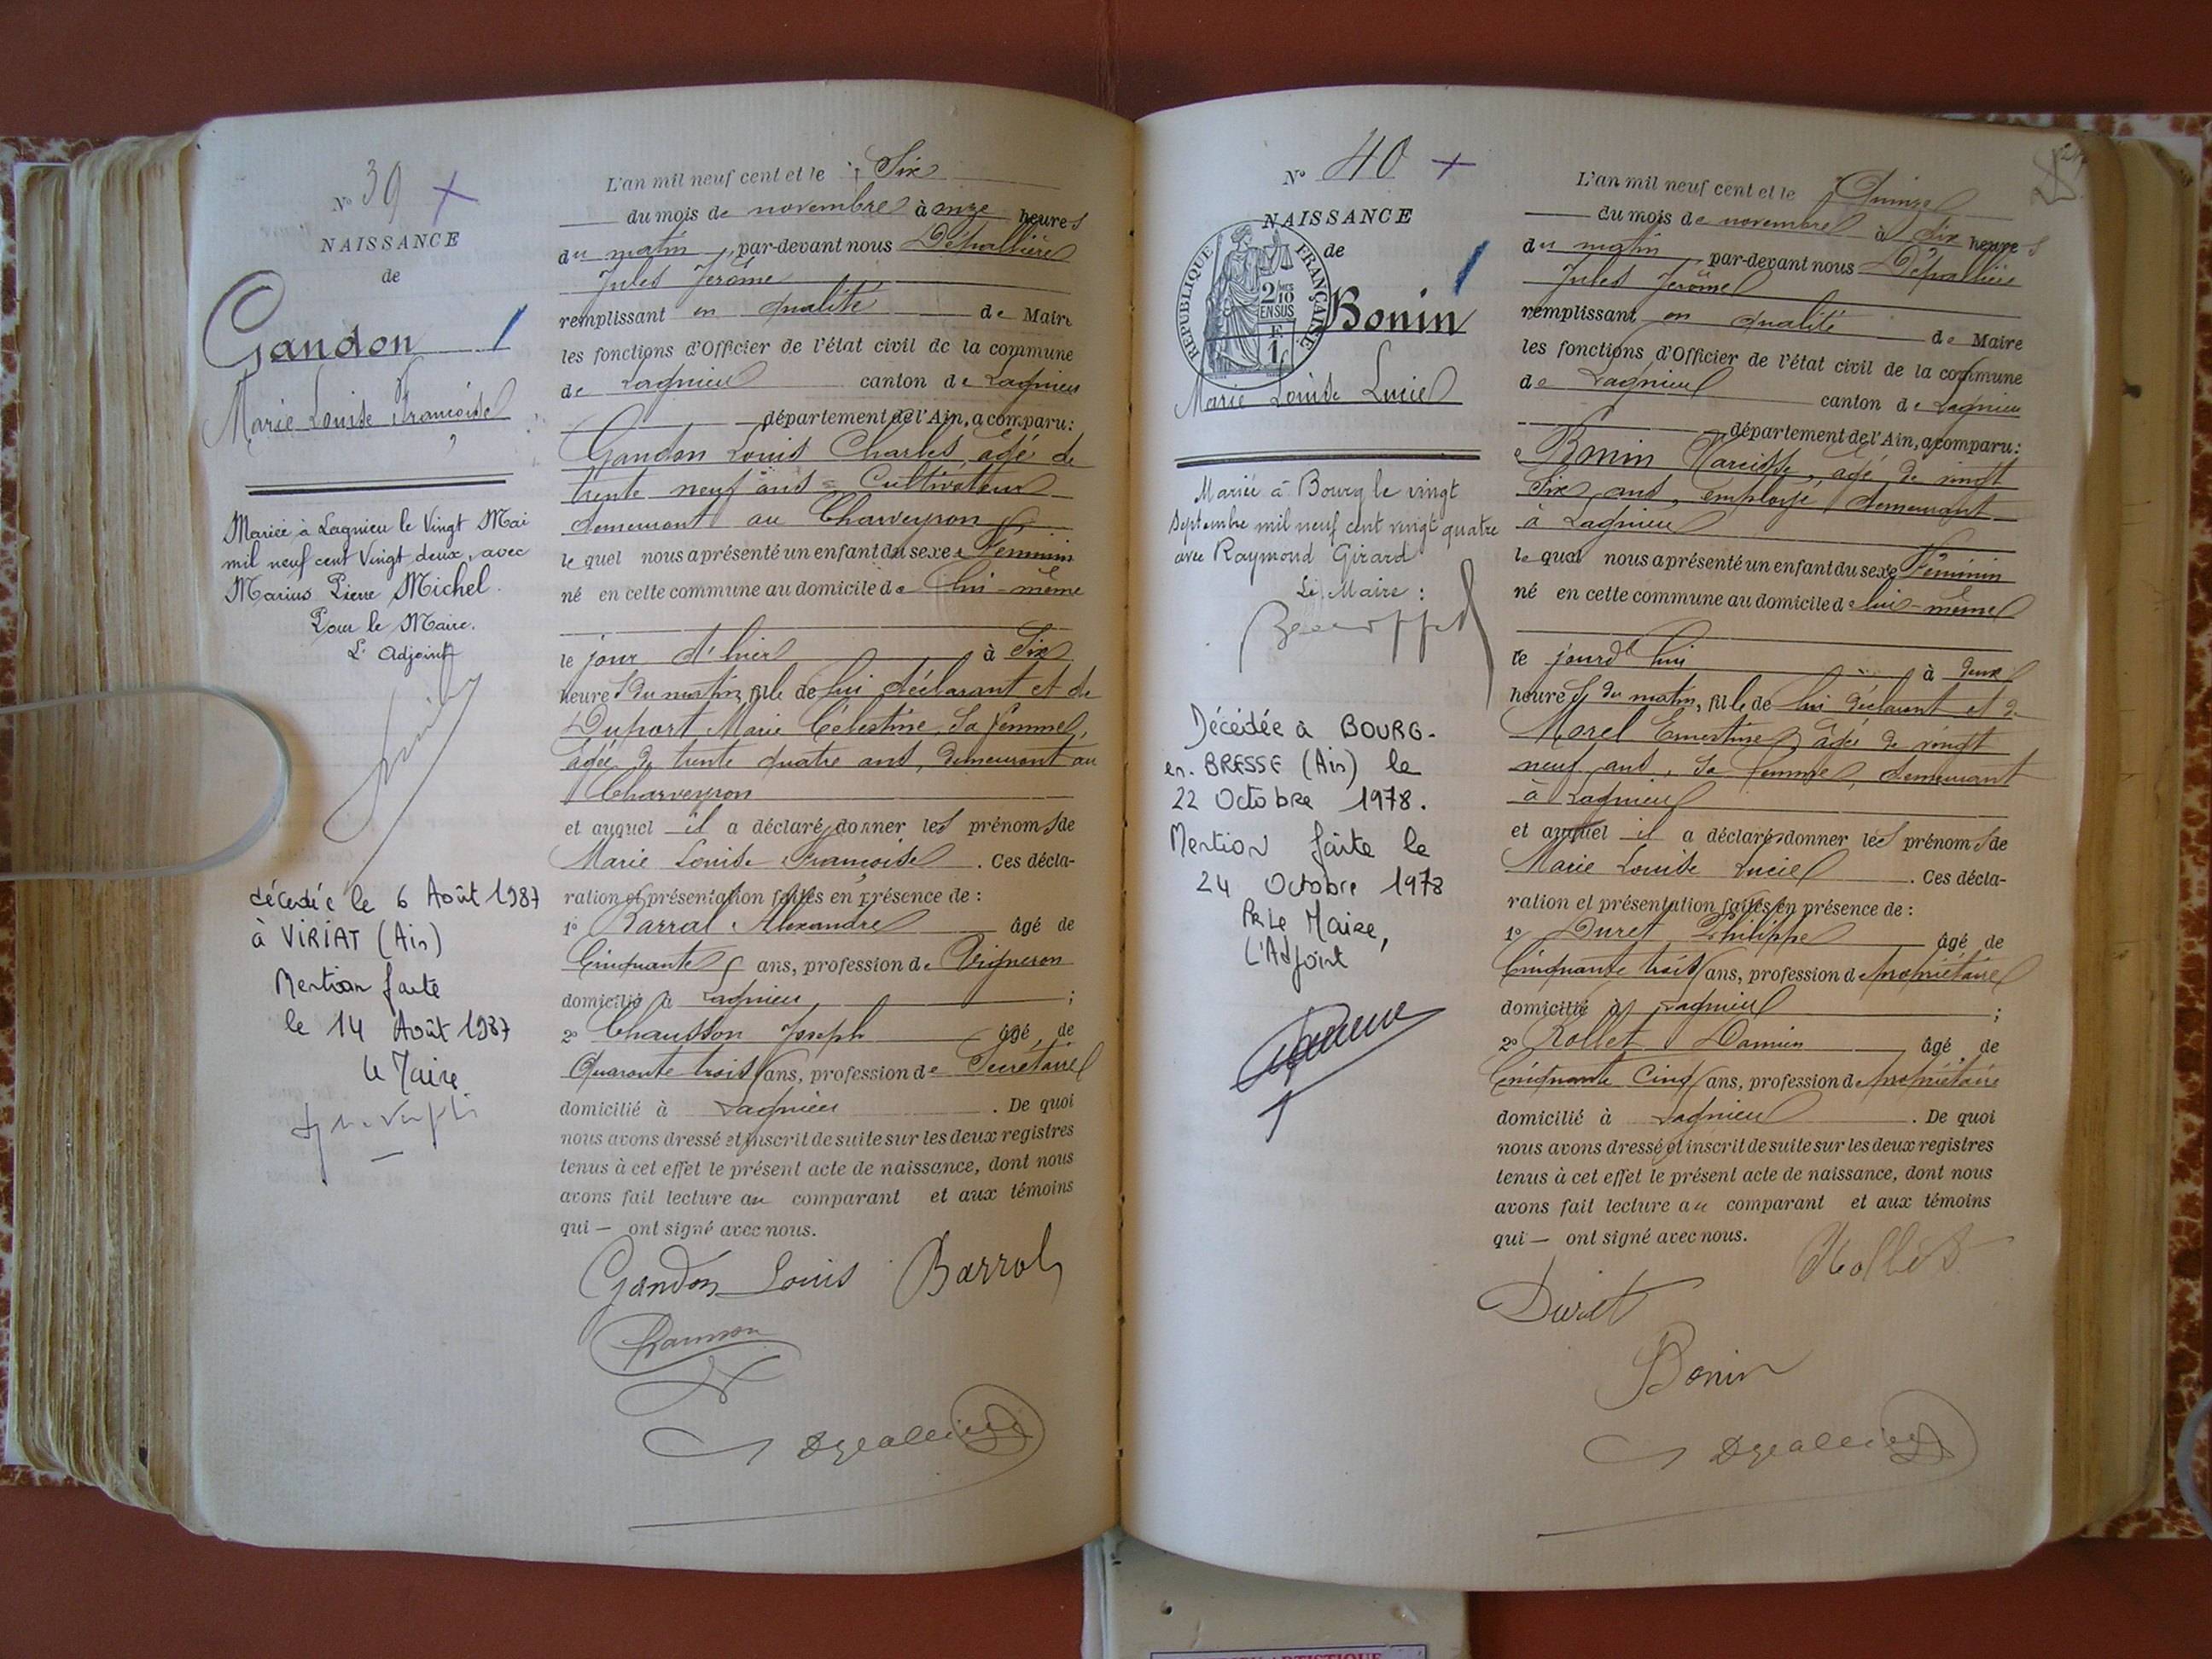 N° 39 +
NAISSANCE
de
Gandon
Marie Louise Françoise
Mariée à Lagnieu le Vingt Mai
mil neuf cent Vingt deux, avec
Marius Pierre Michel.
Pour le Maire.
L'Adjoint
décédée le 6 Août 1987
à VIRIAT (Ain)
Mention faite
le 14 Août 1987
le Maire
L'an mil neuf cent et le Six
du mois de novembre à onze heures
du matin, par-devant nous Dépallière
Jules Jérôme
remplissant en qualité de Maire
les fonctions d'Officier de l'état civil de la commune
de Lagnieu canton de Lagnieu
département de l'Ain, a comparu:
Gandon Louis Charles, âgé de
trente neuf ans = Cultivateur
demeurant au Charveyron
lequel nous a présenté un enfant du sexe Féminin
né en cette commune au domicile de lui-même
le jour d'hier à Six
heures du matin, fille de lui déclarant et de
Duport Marie Célestine, sa femme,
âgée de trente quatre ans, demeurant au
Charveyron
et auquel il a déclaré donner les prénoms de
Marie Louise Françoise. Ces décla-
ration et présentation faites en présence de :
1° Barral Alexandre âgé de
Cinquante ans, profession de Vigneron
domicilié à Lagnieu ;
2° Chausson Joseph âgé de
Quarante trois ans, profession de Secrétaire
domicilié à Lagnieu. De quoi
nous avons dressé et inscrit de suite sur les deux registres
tenus à cet effet le présent acte de naissance, dont nous
avons fait lecture au comparant et aux témoins
qui — ont signé avec nous.
Gandon Louis Barral
Chausson
N° 40 +
NAISSANCE
de
REPUBLIQUE FRANÇAISE
2/10
EN SUS
1f
Bonin
Marie Louise Lucie
Mariée à Bourg le vingt
Septembre mil neuf cent vingt quatre
avec Raymond Girard
Le Maire :
Décédée à BOURG-
en-BRESSE (Ain) le
22 Octobre 1978.
Mention faite le
24 Octobre 1978
Pr Le Maire,
L'Adjoint
L'an mil neuf cent et le Quinze
du mois de novembre à dix heures
du matin par-devant nous Dépallière
Jules Jérôme
remplissant en qualité de Maire
les fonctions d'Officier de l'état civil de la commune
de Lagnieu canton de Lagnieu
département de l'Ain, a comparu:
Bonin Narcisse, âgé de vingt
six ans, employé demeurant
à Lagnieu
lequel nous a présenté un enfant du sexe Féminin
né en cette commune au domicile de lui-même
le jourd'hui à deux
heures du matin, fille de lui déclarant et de
Morel Ernestine, âgée de vingt
neuf ans, sa femme, demeurant
à Lagnieu
et auquel il a déclaré donner les prénoms de
Marie Louise Lucie. Ces décla-
ration et présentation faites en présence de :
1° Duret Philippe âgé de
Cinquante trois ans, profession de propriétaire
domicilié à Lagnieu ;
2° Rollet Damien âgé de
Cinquante Cinq ans, profession de propriétaire
domicilié à Lagnieu. De quoi
nous avons dressé et inscrit de suite sur les deux registres
tenus à cet effet le présent acte de naissance, dont nous
avons fait lecture au comparant et aux témoins
qui — ont signé avec nous.
Rollet
Duret
Bonin